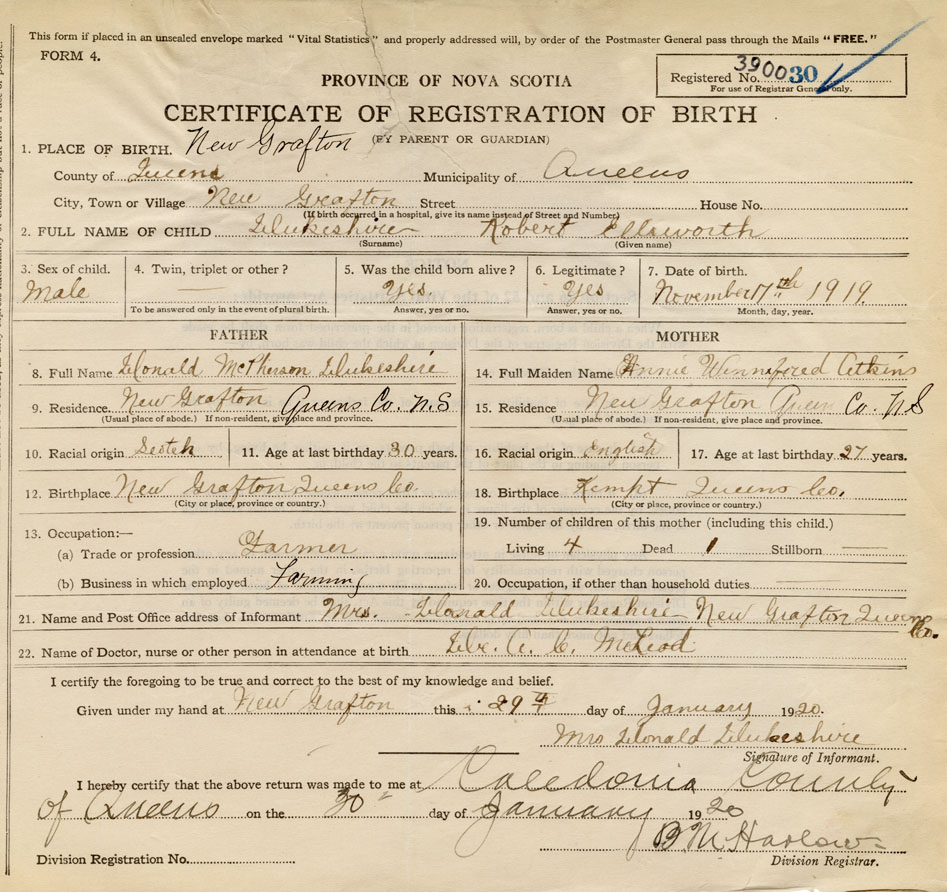 This form if placed in an unsealed envelope marked "Vital Statistics" and properly addressed will, by order of the Postmaster General pass through the Mails "FREE."
FORM 4.
Registered No. 390030
For use of Registrar General only.
PROVINCE OF NOVA SCOTIA
CERTIFICATE OF REGISTRATION OF BIRTH
(BY PARENT OR GUARDIAN)
1. PLACE OF BIRTH. New Grafton
County of Queens Municipality of Queens
City, Town or Village New Grafton Street House No.
(If birth occurred in a hospital, give its name instead of Street and Number)
2. FULL NAME OF CHILD Dukeshire Robert Ellsworth
(Surname) (Given name)
3. Sex of child. 4. Twin, triplet or other? 5. Was the child born alive? 6. Legitimate? 7. Date of birth.
Male — Yes Yes November 17th 1919
To be answered only in the event of plural birth. Answer, yes or no. Answer, yes or no. Month, day, year.
FATHER MOTHER
8. Full Name Donald McPherson Dukeshire 14. Full Maiden Name Annie Winnifred Atkins
9. Residence. New Grafton Queens Co. N.S 15. Residence New Grafton Queen Co. N.S
(Usual place of abode.) If non-resident, give place and province. (Usual place of abode.) If non-resident, give place and province.
10. Racial origin Scotch 11. Age at last birthday 30 years. 16. Racial origin English 17. Age at last birthday 27 years.
12. Birthplace New Grafton Queens Co. 18. Birthplace Kempt Queens Co.
(City or place, province or country.) (City or place, province or country.)
13. Occupation:— 19. Number of children of this mother (including this child.)
(a) Trade or profession Farmer Living 4 Dead 1 Stillborn —
(b) Business in which employed Farming 20. Occupation, if other than household duties —
21. Name and Post Office address of Informant Mrs. Donald Dukeshire New Grafton Queens Co.
22. Name of Doctor, nurse or other person in attendance at birth Dr. A. C. McLeod
I certify the foregoing to be true and correct to the best of my knowledge and belief.
Given under my hand at New Grafton this 29th day of January 1920.
Mrs Donald Dukeshire
Signature of Informant.
I hereby certify that the above return was made to me at Caledonia County
of Queens on the 30" day of January 1920
B M Harlow
Division Registration No. Division Registrar.